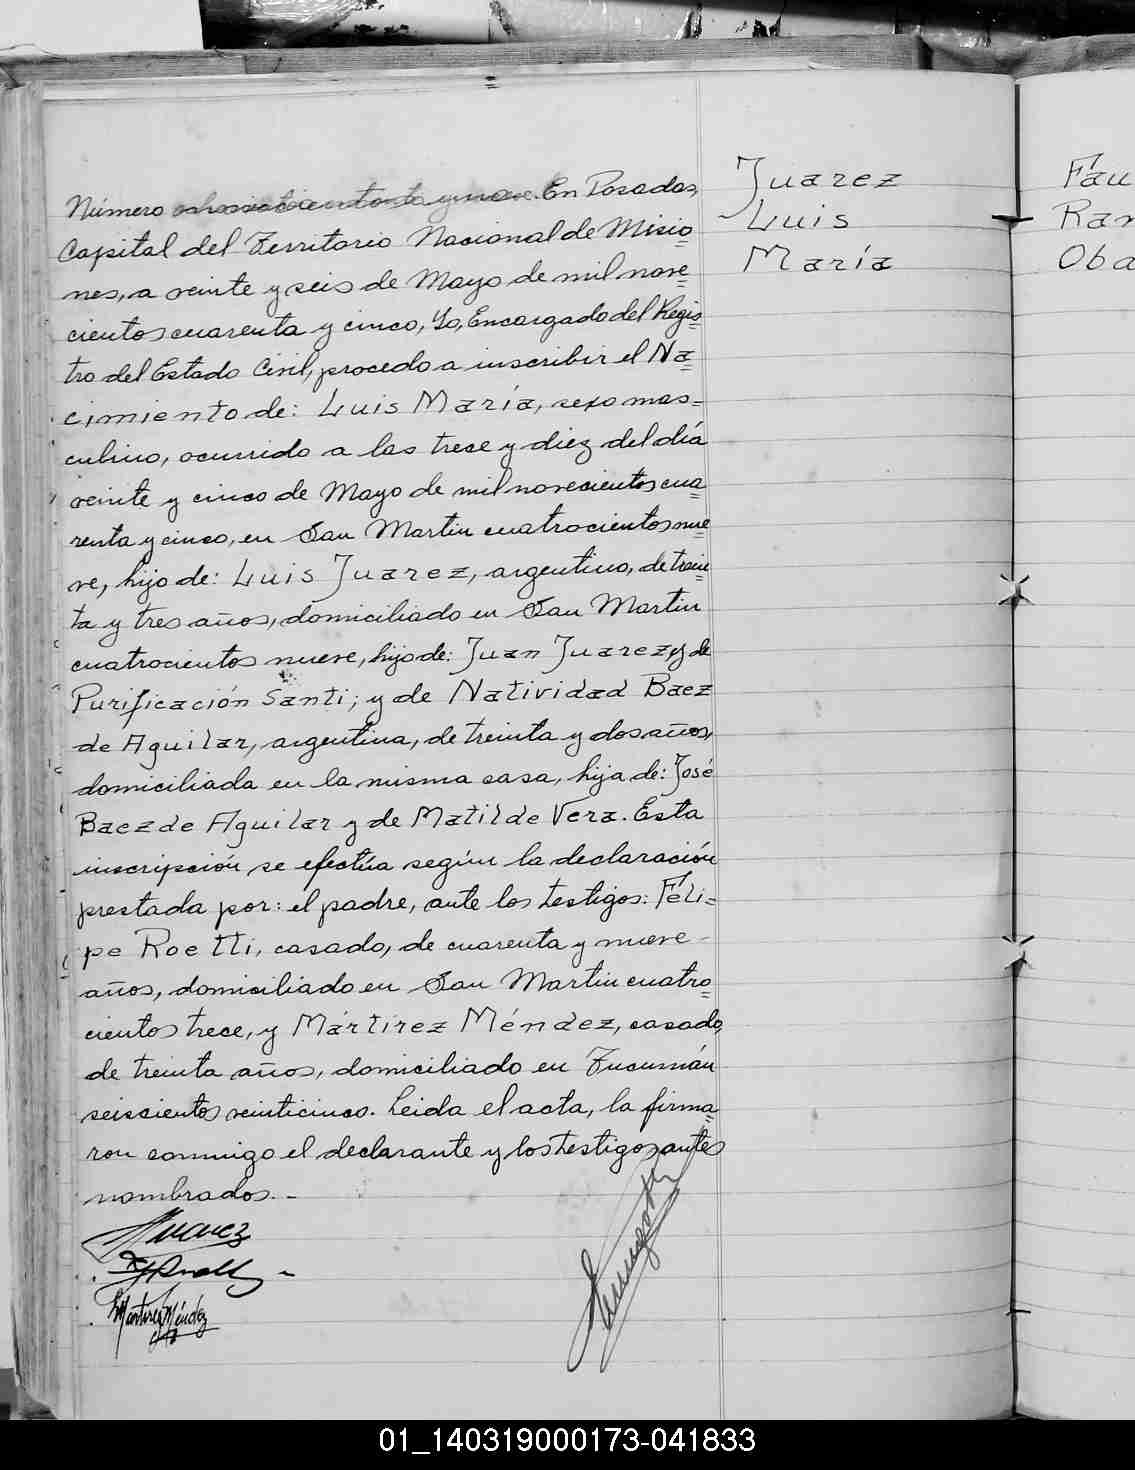 Número ochocientos setenta y nueve. En Posadas,
Capital del Territorio Nacional de Misio=
nes, a veinte y seis de Mayo de mil nove=
cientos cuarenta y cinco, Yo, Encargado del Regis=
tro del Estado Civil, procedo a inscribir el Na=
cimiento de: Luis María, sexo mas=
culino, ocurrido a las trece y diez del día
veinte y cinco de Mayo de mil novecientos cua=
renta y cinco, en San Martin cuatrocientos nue=
ve, hijo de: Luis Juarez, argentino, de trein=
ta y tres años, domiciliado en San Martin
cuatrocientos nueve, hijo de: Juan Juarez, y de
Purificación Santi; y de Natividad Baez
de Aguilar, argentina, de treinta y dos años,
domiciliada en la misma casa, hija de: José
Baez de Aguilar y de Matilde Vera. Esta
inscripción se efectúa según la declaración
prestada por: el padre, ante los testigos: Féli=
pe Roetti, casado, de cuarenta y nueve
años, domiciliado en San Martin cuatro=
cientos trece, y Mártirez Méndez, casado,
de treinta años, domiciliado en Tucumán
seiscientos veinticinco. Leida el acta, la firma=
ron conmigo el declarante y los testigos antes
nombrados.-
Juarez
Martirez Méndez
Juarez
Luis
María
Fau
Ran
Oba
01_140319000173-041833